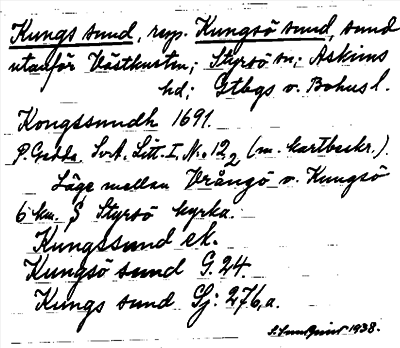 Kungs sund, resp. Kungsö sund, sund
utanför Västkusten; Styrsö sn; Askims
hd; Gtbgs o. Bohusl.
Kongssundh 1691.
P. Gedda. Sv.A. Litt. I, No. 12, 2 (m. kartbeskr.)
Läge mellan Vrångö o. Kungsö
6 km. S Styrsö kyrka.
Kungssund ek.
Kungsö sund G. 24.
Kungs sund Sj: 276,a.
S. Lundquist 1938.